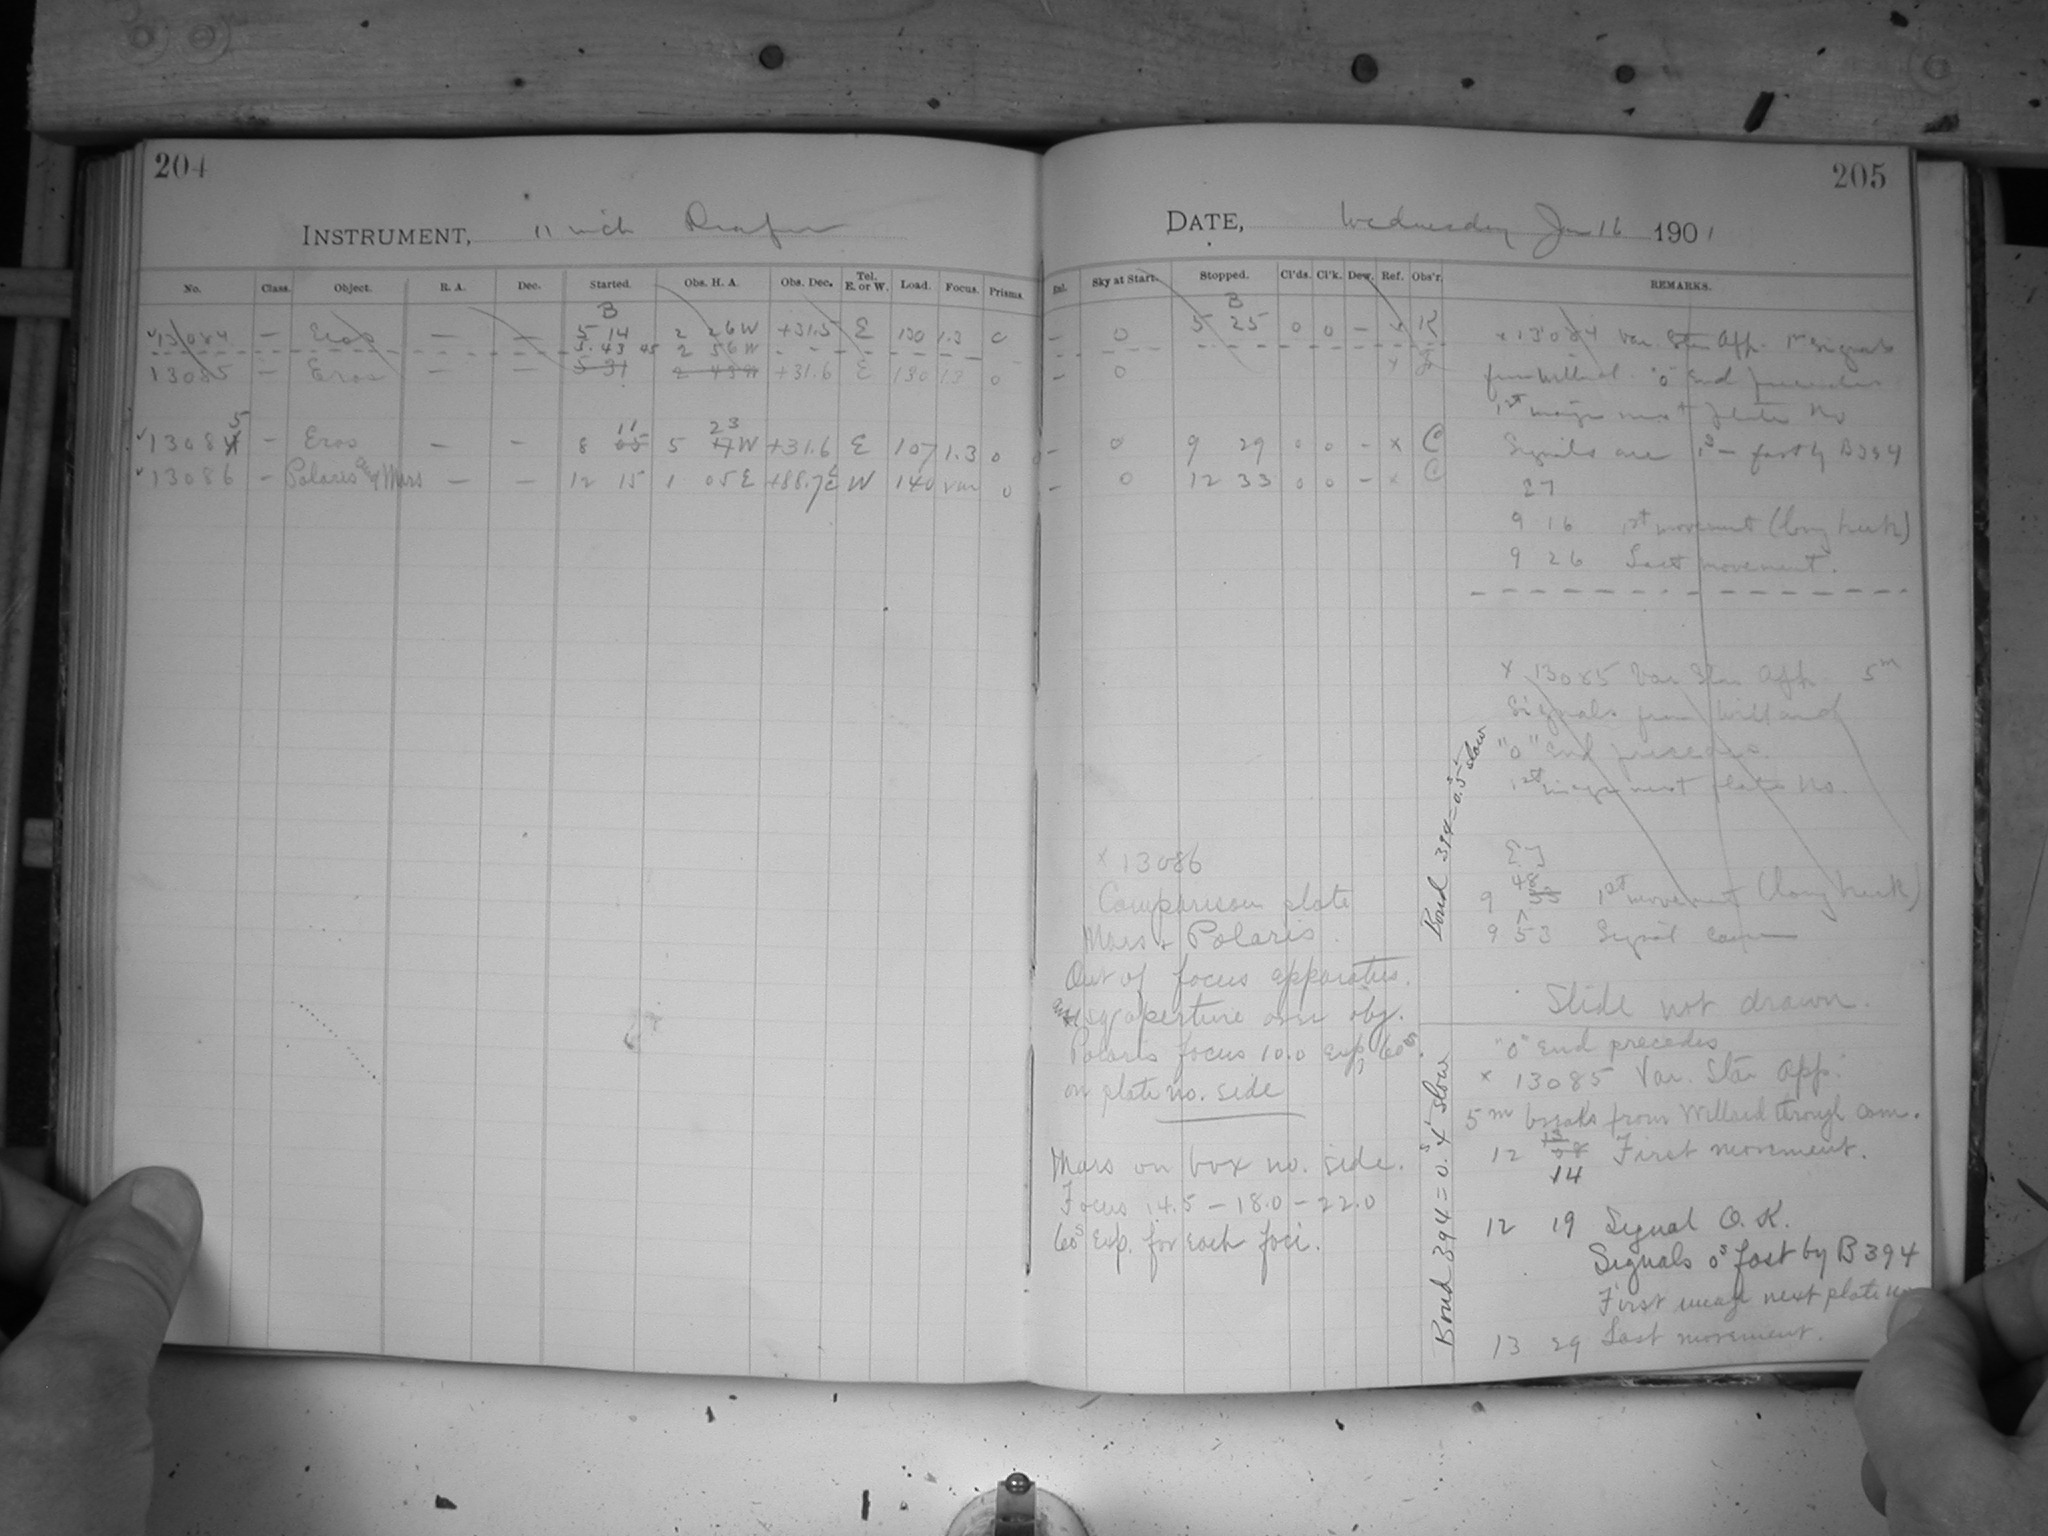 204
INSTRUMENT, 11 inch Draper
No. Class. Object. R. A. Dec. Started. Obs. H. A. Obs. Dec. Tel. E. or W. Load. Focus. Prisms.
B
13084 — Eros — — 5 14 2 26W +31.5 E 130 1.3 0
5 43 45 2 56W
13085 — Eros — — 5 31 2 43W +31.6 E 130 13 0
5 11 23
13084 — Eros — — 8 05 5 17W +31.6 E 107 1.3 0
13086 — Polaris and Mars — — 12 15 1 05E +88.7 W 140 var 0
205
DATE, Wednesday Jan 16 1901
Sky at Start. Stopped. Cl'ds. Cl'k. Dew. Ref. Obs'r. REMARKS.
B
— 0 5 25 0 0 — x K
— 0 x
— 0 9 29 0 0 — x C
— 0 12 33 0 0 — x C
x 13084 Var. Star App. 1m Signals
from Willard "0" End precedes
1st image next plate No
Signals are 1s — fast by B394
27
9 16 1st movement (long hook)
9 26 Last movement.
x 13085 Var Star App. 5m
Signals from Willard
"0" End precedes.
1st image next plate No.
48
9 53 1st movement (long hook)
9 53 Signal came
Slide not drawn.
"0" End precedes
x 13085 Var. Star App.
5m breaks from Willard through com.
12 08 First movement.
14
12 19 Signal O. K.
Signals 0s fast by B 394
First image next plate no
13 29 Last movement.
x 13086
Comparison plate
Mars + Polaris.
Out of focus apparatus.
and sq. aperture over obj.
Polaris focus 10.0 exp, 60s.
on plate no. side
Mars on box no. side.
Focus 14.5 — 18.0 — 22.0
60s Exp. for each foci.
Bond 394 = 0.s5 slow
Bond 394 = 0.s4 slow